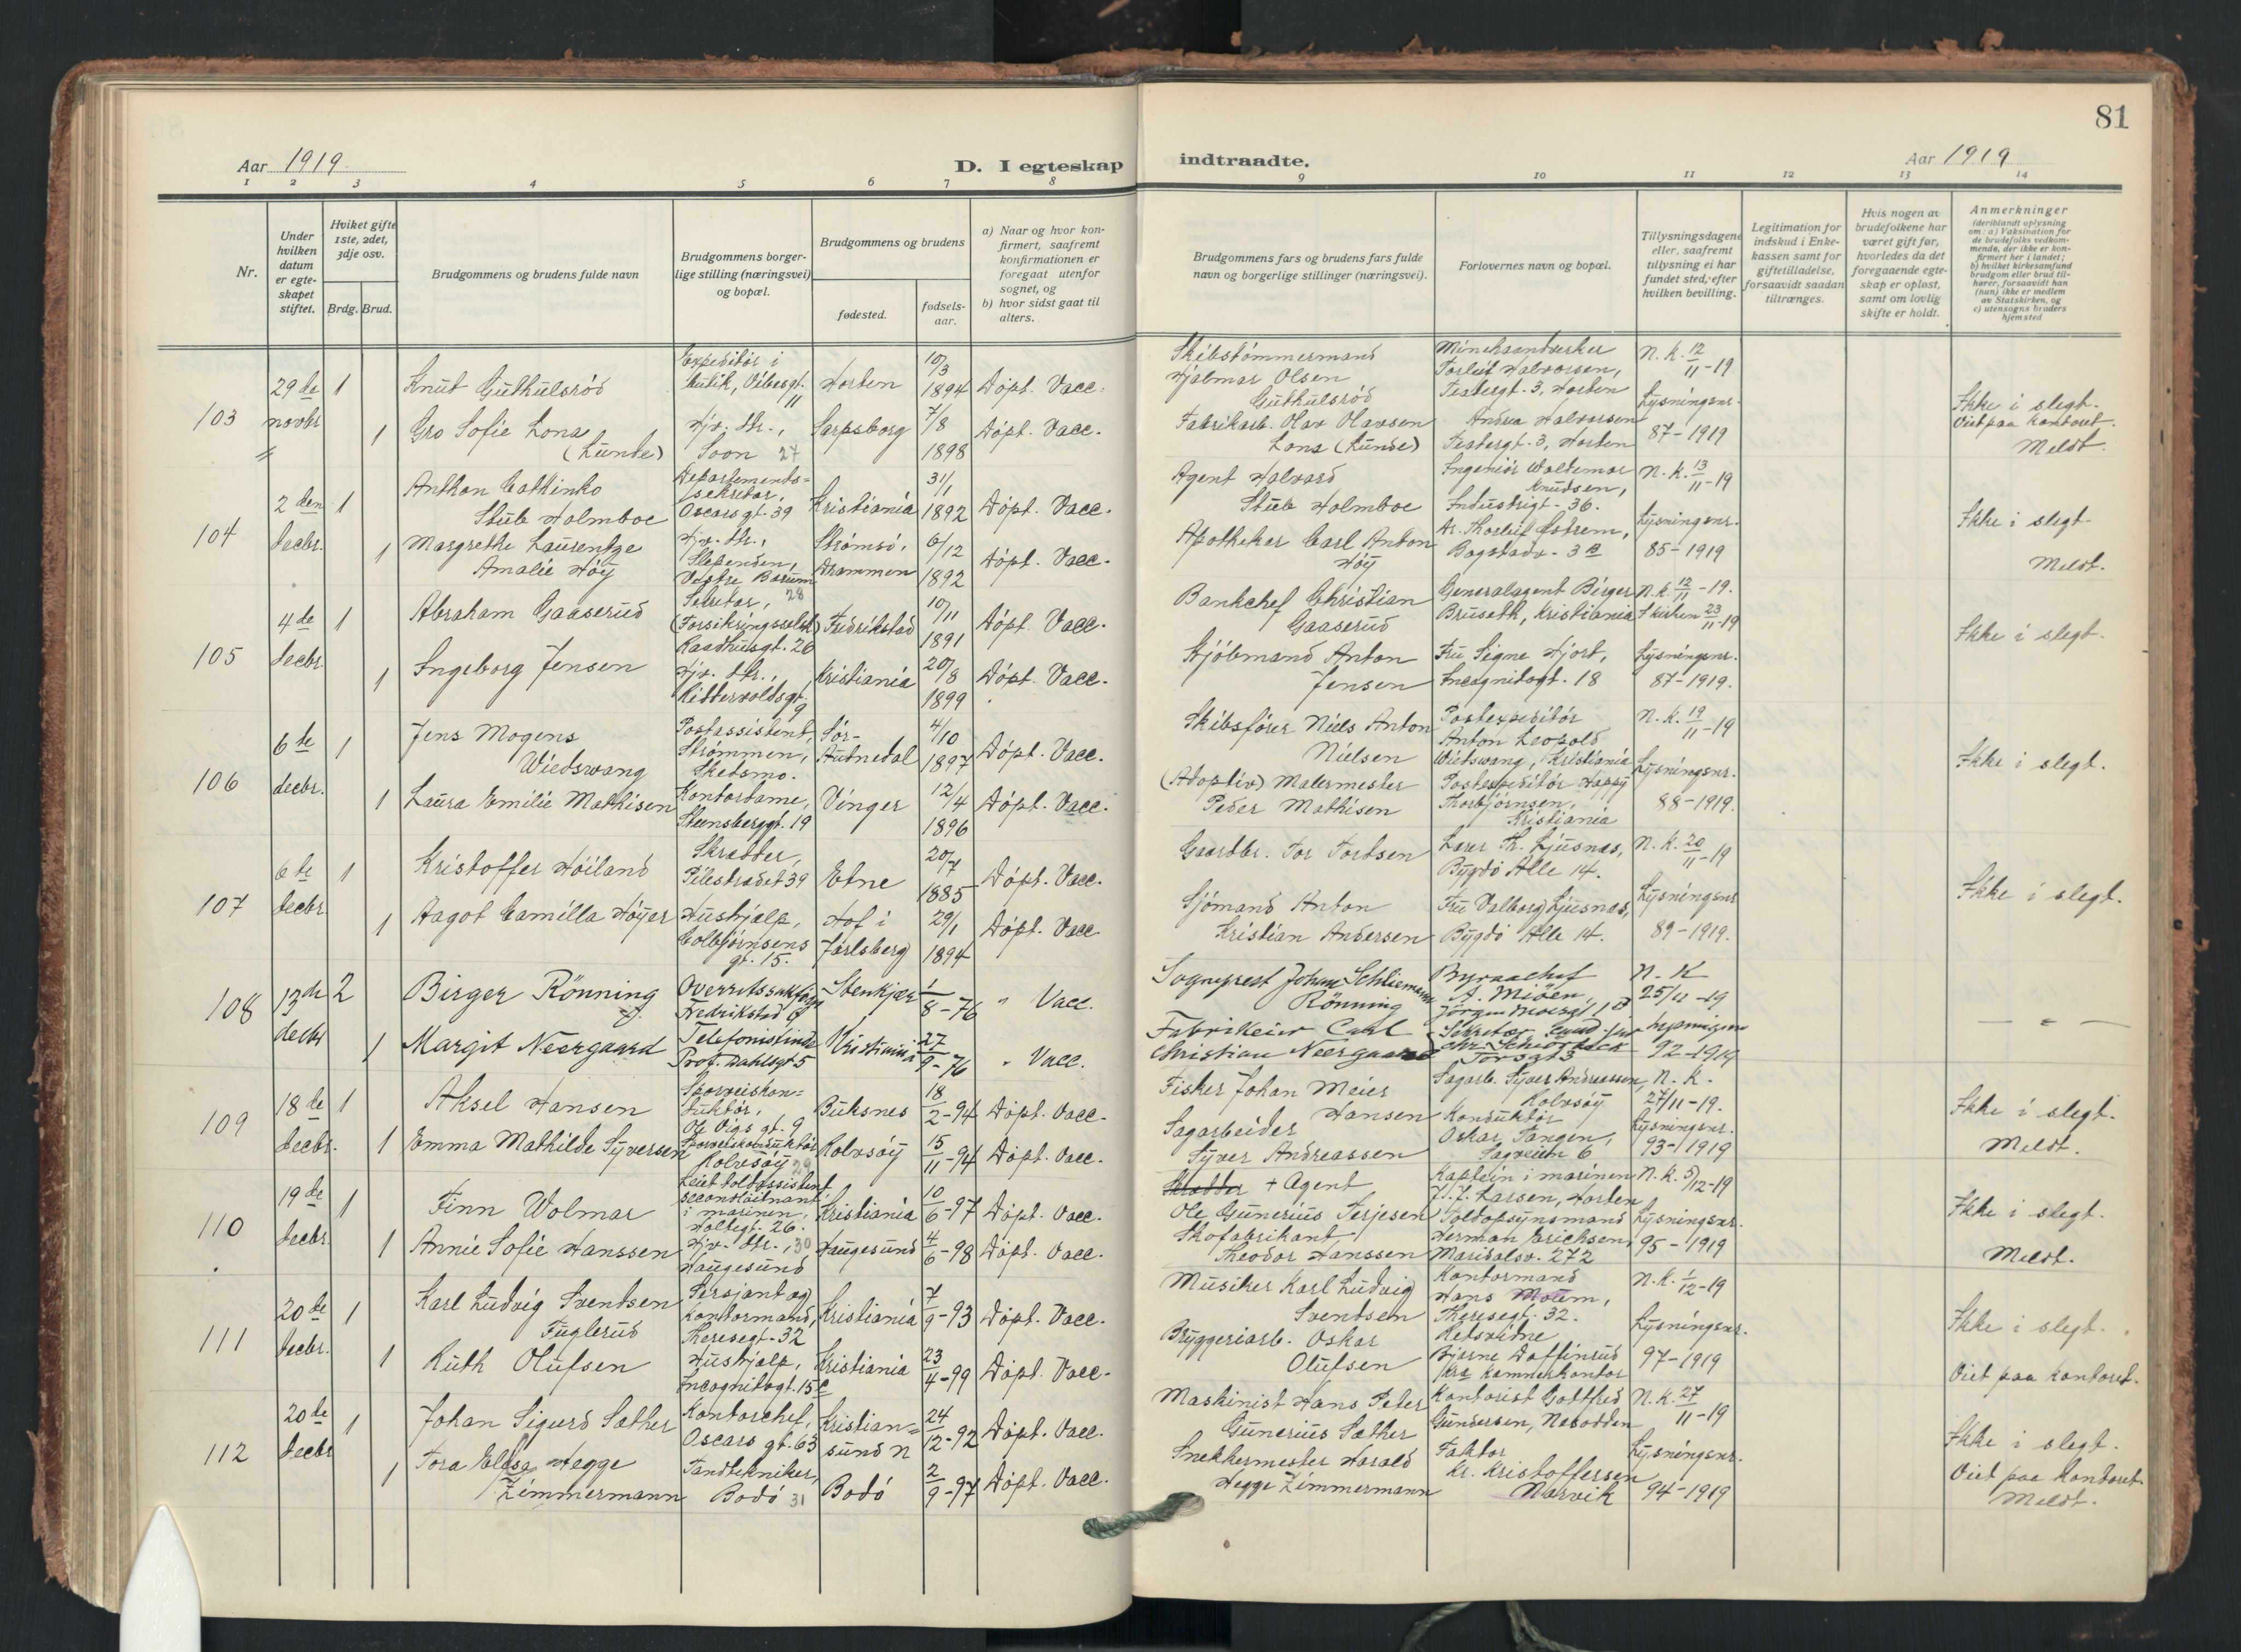 81
Aar 1919.
D. I egteskap
indtraadte.
Aar 1919
1 2 3 4 5 6 7 8
9 10 11 12 13 14
Nr.
Under hvilken datum er egteskapet stiftet.
Hviket gifte 1ste, 2det, 3dje osv.
Brdg. Brud.
Brudgommens og brudens fulde navn
Brudgommens borgerlige stilling (næringsvei) og bopæl.
Brudgommens og brudens
fødested.
fødselsaar.
a) Naar og hvor konfirmert, saafremt konfirmationen er foregaat utenfor sognet, og
b) hvor sidst gaat til alters.
Brudgommens fars og brudens fars fulde navn og borgerlige stillinger (næringsvei).
Forlovernes navn og bopæl.
Tillysningsdagene eller, saafremt tillysning ei har fundet sted, efter hvilken bevilling.
Legitimation for indskud i Enkekassen samt for giftetilladelse, forsaavidt saadan tiltrænges.
Hvis nogen av brudefolkene har været gift før, hvorledes da det foregaaende egteskap er opløst, samt om lovlig skifte er holdt.
Anmerkninger
(deriblandt oplysning om: a) Vaksination for de brudefolks vedkommende, der ikke er konfirmert her i landet; b) hvilket kirkesamfund brudgom eller brud tilhører, forsaavidt han (hun) ikke er medlem av Statskirken, og c) utensogns bruders hjemsted
103
29de novbr
1
Knut Guthulsród
Expeditór i butik, Vibesgt. 11
Horten
10/3 1894
Dópt. Vacc.
Skibstómmermand Hjalmar Olsen Guthulsród
Torleif Halvorsen, Teatergt. 3, Horten
N. K. 12/11-19
1
Gro Sofie Lona (Lunde)
Hjv. dtr., Soon 27
Sarpsborg
7/8 1898
Dópt. Vacc.
Fabrikarb. Olav Olavsen Lona (Lunde)
Andrea Halvorsen Teatergt. 3, Horten
Lysningsnr. 87-1919
Ikke i slegt.
Viet paa kontoret.
Meldt.
104
2den decbr.
1
Anthon Cathinko Stub Holmboe
Departements=sekretær, Oscarsgt. 39
Kristiania
31/1 1892
Dópt. Vacc.
Agent Halvard Stub Holmboe
Ingeniór Waldemar Knudsen, Industrigt. 36.
N. K. 13/11-19
1
Margrethe Laurentze Amalie Hóy
Hjv. dtr., Slependen, Vestre Bærum 28
Strómsó, Drammen
6/12 1892
Dópt. Vacc.
Apotheker Carl Anton Hóy
Dr. Thorleif Østrem, Bogstadv. 3 B
Lysningsnr. 85-1919
Ikke i slegt.
Meldt.
105
4de decbr.
1
Abraham Gaaserud
Sekretær, (Forsikringsselsk) Raadhusgt. 26
Fredrikstad
10/11 1891
Dópt. Vacc.
Bankchef Christian Gaaserud
Generalagent Birger Bruseth, Kristiania
N. K. 12/11-19. I kirken 23/11-19
1
Ingeborg Jensen
Hjv. dtr., Riddervoldsgt. 9
Kristiania
20/8 1899
Dópt. Vacc.
Sjóbmand Anton Jensen
Fru Signe Hjort, Incognitogt. 18
Lysningsnr. 87-1919.
Ikke i slegt.
106
6te decbr.
1
Jens Mogens Wiedswang
Postassistent, Strómmen, Skedsmo.
Sór-Audnedal
4/10 1897
Dópt. Vacc.
Skibsfórer Niels Anton Nielsen
Postexpeditór Anton Leopold Wiedswang, Kristiania
N. K. 19/11-19
1
Laura Emilie Mathisen
Kontordame, Steensberggt. 19
Vinger
12/4 1896
Dópt. Vacc.
(Adoptiv) Malermester Peder Mathisen
Postexpeditór Happy Thorbjórnsen, Kristiania
Lysningsnr. 88-1919.
Ikke i slegt.
107
6te decbr.
1
Kristoffer Hóiland
Skrædder, Pilestrædet 39
Etne
20/7 1885
Dópt. Vacc.
Gaardbr. Tor Tordsen
Lærer Th. Ljusnæs, Bygdó Alle 14.
N. K. 20/11-19
1
Aagot Camilla Hóyer
Hushjælp, Colbjórnsens gt. 15.
Hof i Jarlsberg
29/1 1894
Dópt. Vacc.
Sjómand Anton Kristian Andersen
Fru Valborg Ljusnæs, Bygdó Alle 14.
Lysningsnr 89-1919.
Ikke i slegt.
108
13de decbr
2
Birger Rönning
Overretssakfører Fredrikstad
Stenkjær
1/8-76
" Vacc.
Sogneprest Johan Schliemann Rönning
Byraachef A. Miöen,
N. K 25/11-19
1
Margit Neergaard
Telefonistinde Prof. Dahlsgt 5
Kristiania
27/9-76
" Vacc.
Fabrikeier Carl Christian Neergaard
Torsgt 3
92-1919
— " —
109
18de decbr.
1
Aksel Hansen
Sporveiskon=duktór, Ole Vigs gt. 9
Buksnes
18/2-94
Dópt. Vacc.
Fisker Johan Meier Hansen
Sagarb. Syver Andreassen, Rolvsóy
N. K. 27/11-19.
1
Emma Mathilde Syversen
Rolvsóy 29
Rolvsóy
15/11-94
Dópt. Vacc.
Sagarbeider Syver Andreassen
Konduktór Oskar Tangen, Sagveien 6
Lysningsnr. 93-1919
Ikke i slegt.
Meldt.
110
19de decbr.
1
Finn Wolmar
secondlóitnant i marinen, Holtegt. 26.
Kristiania
10/6-97
Dópt. Vacc.
Skrædder + Agent Ole Gunerius Terjesen
Kaptein i marinen J. J. Larsen, Horten
N. K. 5/12-19
1
Annie Sofie Hanssen
Hjv. dtr., 30 Haugesund
Haugesund
4/6-98
Dópt. Vacc.
Skofabrikant Theodor Hanssen
Toldopsynsmand Herman Erichsen, Maridalsv. 272
Lysningsnr. 95-1919
Ikke i slegt.
Meldt.
111
20de decbr.
1
Karl Ludvig Svendsen Fuglerud
Sersjant og kontormand, Theresegt. 32
Kristiania
7/9-93
Dópt. Vacc.
Musiker Karl Ludvig Svendsen
Kontormand Hans Moum, Theresegt. 32.
N. K. 1/12-19
1
Ruth Olufsen
Hushjælp, Incognitogt. 15 C
Kristiania
23/4-99
Dópt. Vacc.
Bryggeriarb. Oskar Olufsen
Retsvidne Bjarne Daffinrud Kra kæmnerkontor
Lysningsnr. 97-1919
Ikke i slegt.
Viet paa kontoret.
112
20de decbr
1
Johan Sigurd Sæther
Kontorchef, Oscars gt. 63
Kristian=sund N
24/12-92
Dópt. Vacc.
Maskinist Hans Peter Gunerius Sæther
Kontorist Gottfred Gundersen, Nesodden
N. K. 27/11-19
1
Tora Elisa Hegge Zimmermann
Tandtekniker, Bodó 31
Bodó
2/9-97
Dópt. Vacc.
Snekkermester Harald Hegge Zimmermann
Faktor Kr. Kristoffersen Narvik
Lysningsnr. 94-1919
Ikke i slegt.
Viet paa kontoret.
Meldt.